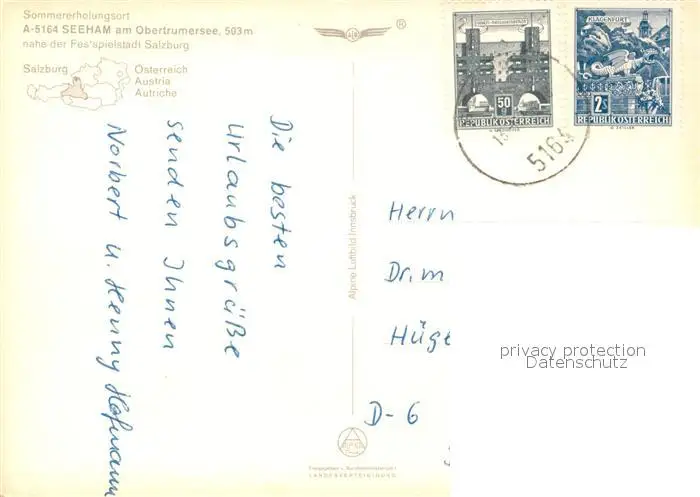 Sommererholungsort
A-5164 SEEHAM am Obertrumersee, 503 m
nahe der Festspielstadt Salzburg
Salzburg
Österreich
Austria
Autriche
®
Die besten
Urlaubsgrüße
senden Ihnen
Norbert u. Henny Hofmann
Alpine Luftbild Innsbruck
50
REPUBLIK ÖSTERREICH
KLAGENFURT
2s
REPUBLIK ÖSTERREICH
5164
Herrn
Dr. m
Hüge
D-6
privacy protection
Datenschutz
LANDESVERTEIDIGUNG